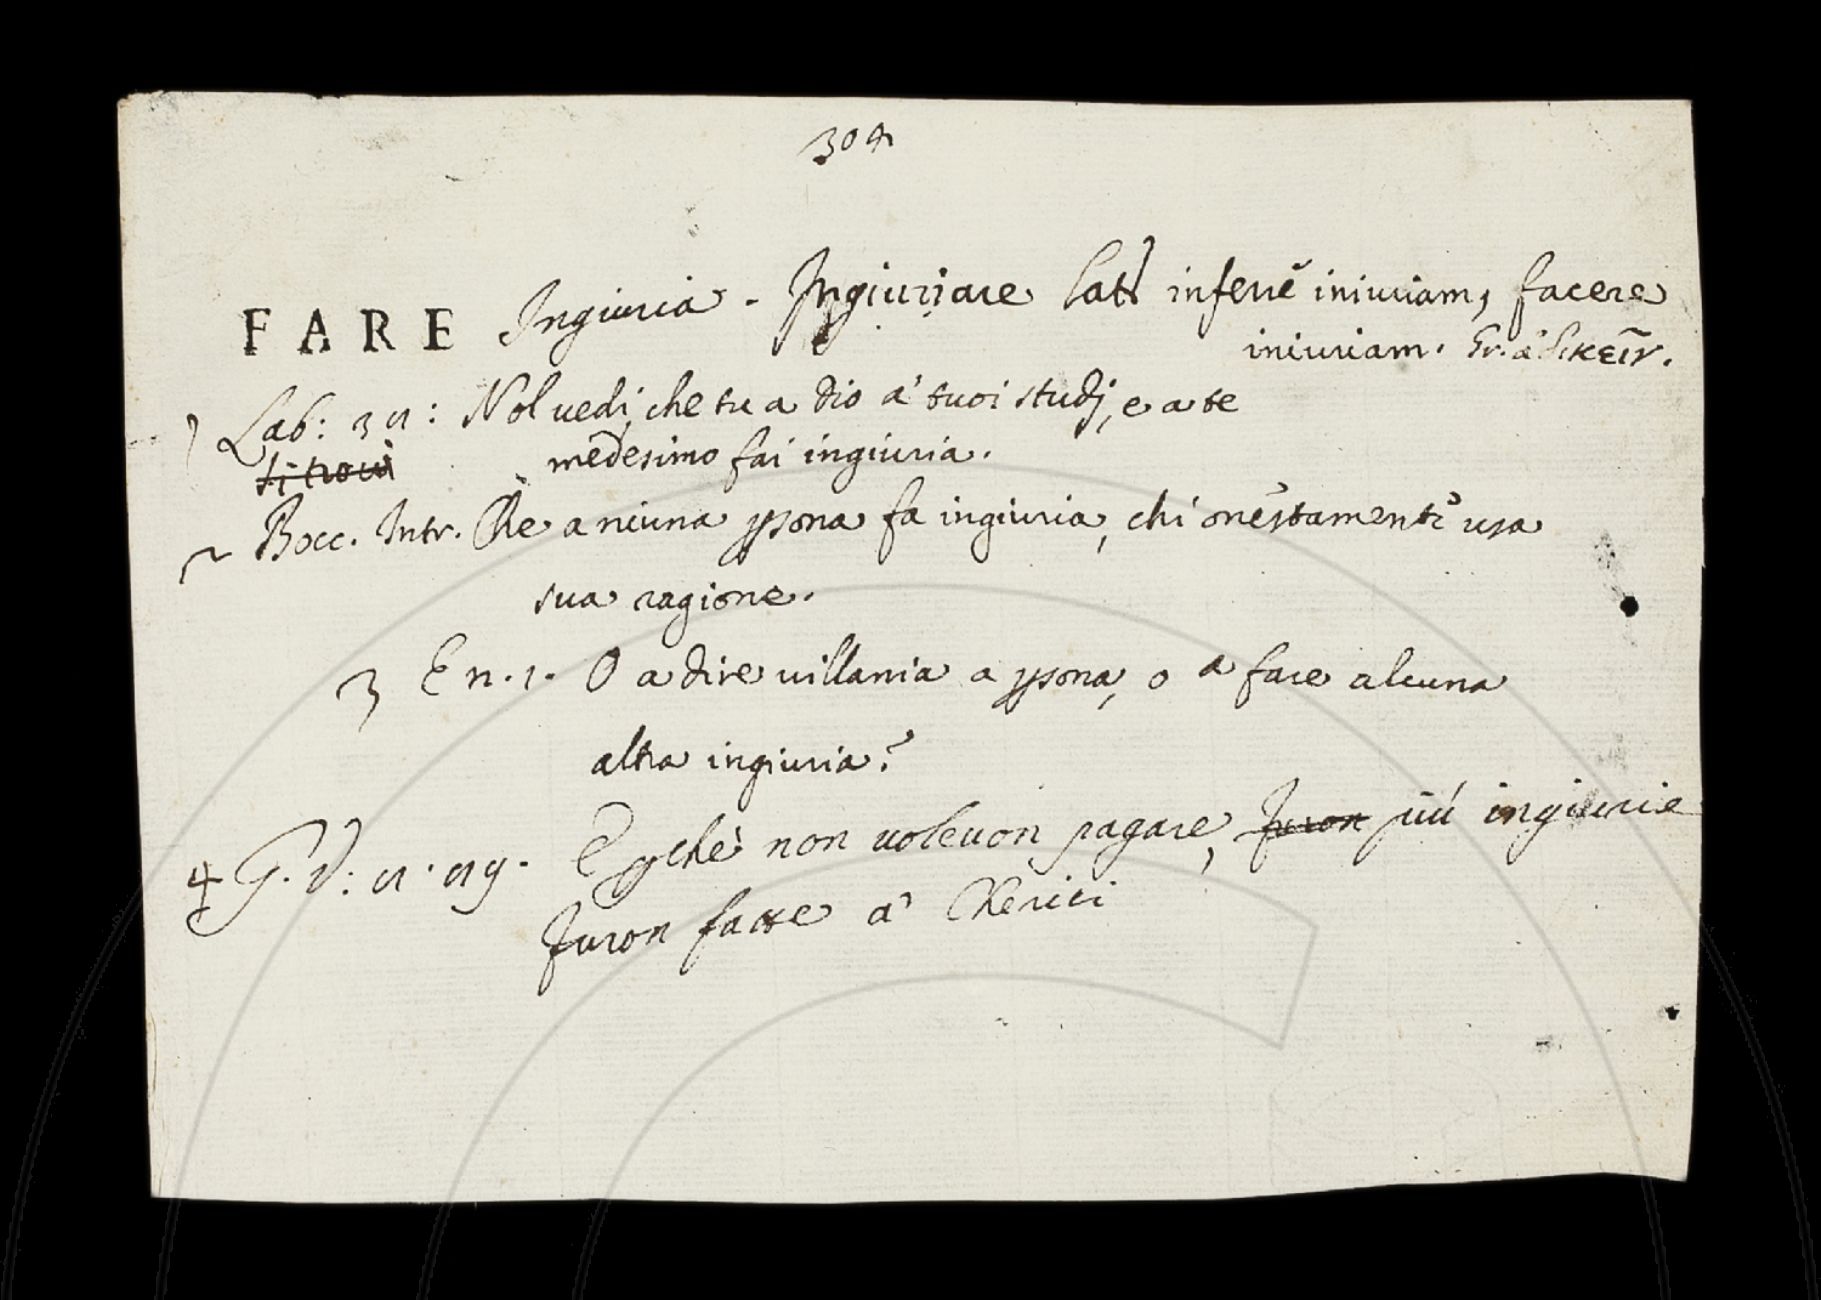 304
FARE Ingiuria - Ingiuriare Lat. inferrẽ iniuriam, facere
iniuriam. Gr. ἀδικεῖν.
1 Lab: 32: Nol uedi, che tu a dio a' tuoi studj, e a te
ti troui medesimo fai ingiuria.
2 Bocc. Intr. Che a niuna p̲sona fa ingiuria, chi onestamentẽ usa
sua ragione.
3 E n. 1. O a dire uillania a p̲sona, o a fare alcuna
altra ingiuria?
4 G. V: 
E p̲chè non uoleuon pagare, furon più ingiurie
furon fatte a' Cherici